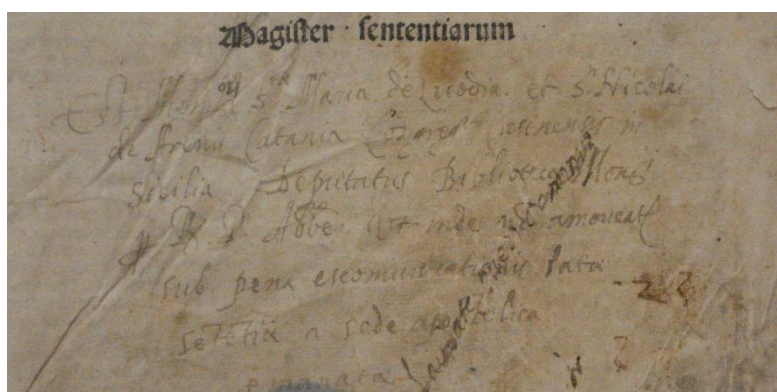 Magister sententiarum
Est Monrii Ste Maria de Licodia. et Sti Nicolai
de Arenis Catania Congreg Casinensis in
Sicilia. Deputatus Biblioteca
P R. P. Abbe. Ut inde nõ amoveat
sub pena escomunicationis lata
setētia a sede apostolica
emanata